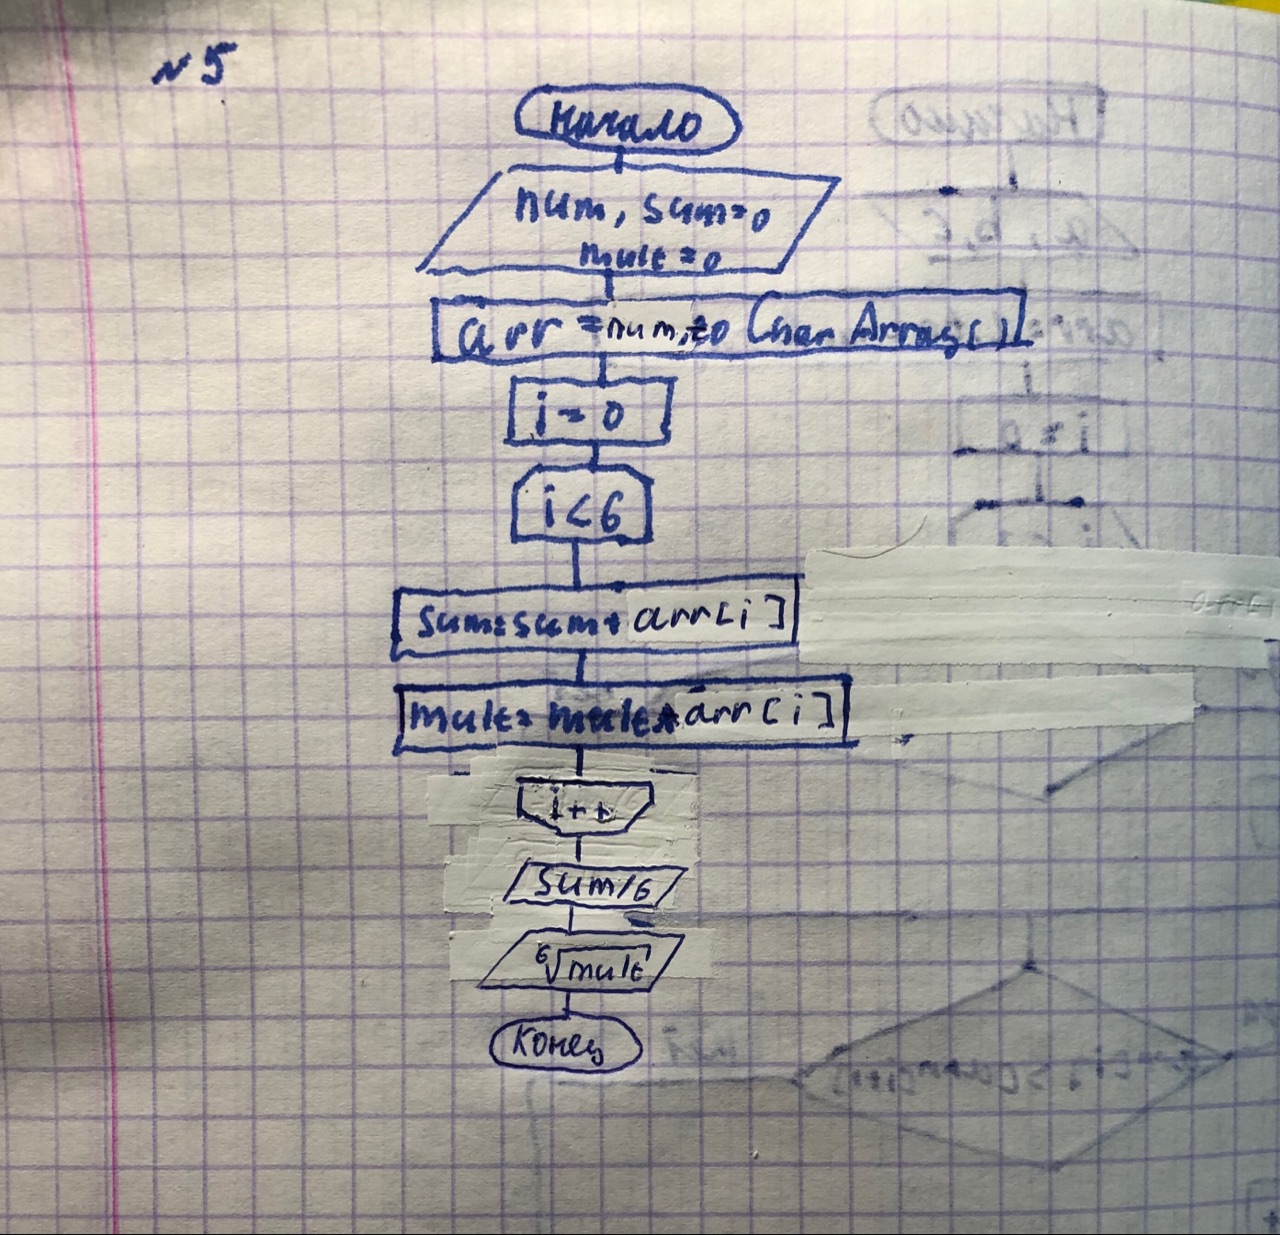 №5
Начало
num, sum=0
mult=0
arr=num.toCharArray()
i=0
i<6
sum=sum+arr[i]
mult=mult*arr[i]
i++
sum/6
⁶√mult
Конец